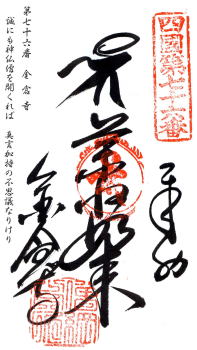 四國第七十六番
奉納
薬師如来
金倉寺
第七十六番 金倉寺
誠にも神仏僧を開くれば 真言加持の不思議なりけり